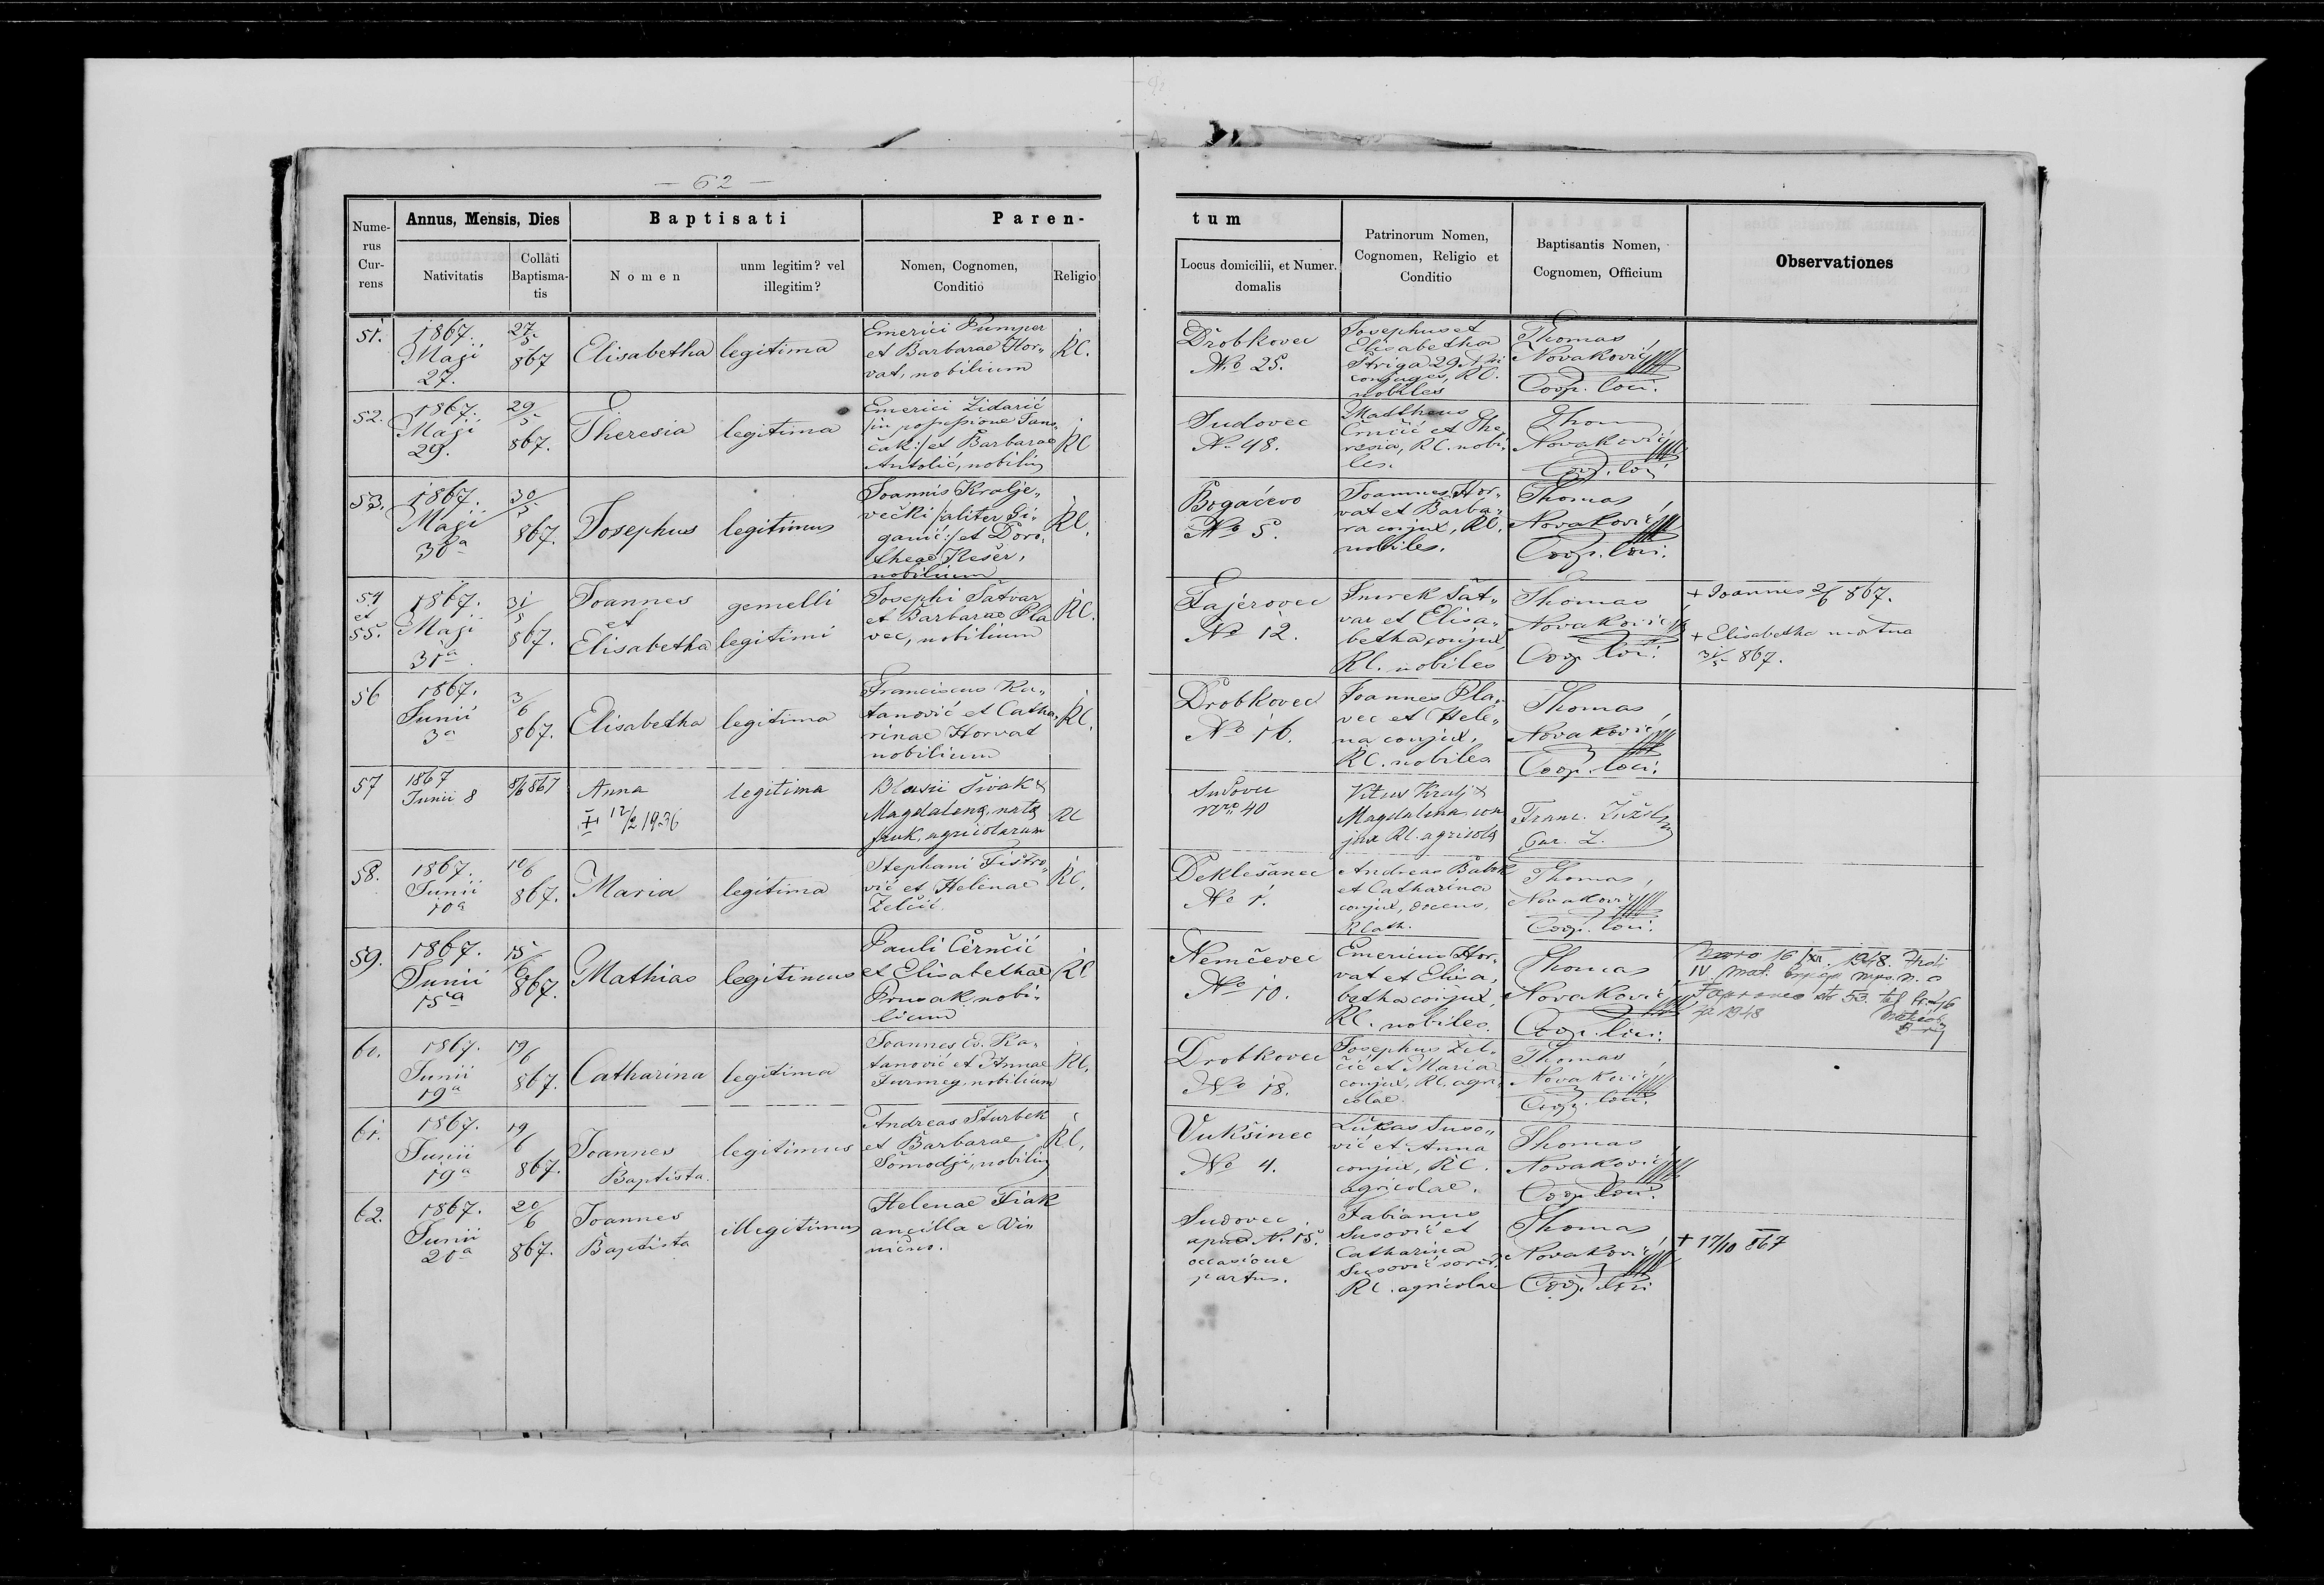 — 62 —
Numerus Currens
Annus, Mensis, Dies
Nativitatis
Collati Baptismatis
Baptisati
Nomen
unm legitim? vel illegitim?
Paren-
Nomen, Cognomen, Conditio
Religio
tum
Locus domicilii, et Numer. domalis
Patrinorum Nomen, Cognomen, Religio et Conditio
Baptisantis Nomen, Cognomen, Officium
Observationes
51.
1867.
Maji
27.
27/5
867
Elisabetha
legitima
Emerici Pumper
et Barbarae Hor„
vat, nobilium
RC.
Drobkovec
No 25.
Josephus et
Elisabetha
Striga 29
conjuges, RC.
nobiles
Thomas
Novaković
Coop. loci.
52.
1867.
Maji
29.
29/5
867.
Theresia
legitima
Emerici Židarić
/:in possessione Jan„
čak:/ et Barbarae
Antolić, nobiliu
RC
Sudovec
No 48.
Mattheus
Črnčić et The„
resia, RC. nobi„
les.
Thom
Novaković
Coop. loci
53.
1867.
Maji
30a
30/5
867.
Josephus
legitimus
Joannis Kralje„
večki /:aliter Gi„
ganić:/ et Doro„
theae Kešer,
nobilium
RC.
Bogačevo
No 5.
Joannes Hor„
vat et Barba„
ra conjux, RC.
nobiles.
Thomas
Novaković
Coop. loci.
54
et
55.
1867.
Maji
31a
31/5
867.
Joannes
et
Elisabetha
gemelli
legitimi
Josephi Šatvar
et Barbarae Pla
vec, nobilium
RC.
Fajerovec
No 12.
Imrek Šat„
var et Elisa„
betha, conjux,
RC. nobiles
Thomas
Novaković
Coop. loci.
+ Joannes 2/6 867.
+ Elisabetha mortua
31/5 867.
56
1867.
Junii
3a
3/6
867.
Elisabetha
legitima
Franciscus Ka„
tanović et Catha„
rinae Horvat
nobilium
RC.
Drobkovec
No 16.
Joannes Pla„
vec et Hele„
na conjux,
RC. nobiles
Thomas
Novaković
Coop. loci.
57
1867
Junii 8
8/6 867
Anna
+ 12/2 1936
legitima
Blasii Sivak &
Magdalena, nata
agricolarum
RC
Sudovec
nro 40
Vitus Kralj &
Magdalena con
jux RC. agricola
Franc.
Par. L.
58.
1867.
Junii
10a
10/6
867.
Maria
legitima
Stephani Fistro„
vić et Helenae
Želčić.
RC.
Deklešanec
No 1.
Andreas Babok
et Catharina
conjux, docens,
RCath.
Thomas
Novaković
Coop. loci.
59.
1867.
Junii
15a
15/6
867.
Mathias
legitimus
Pauli Černčić
et Elisabethae
Prusak nobi„
lium
RC
Nemčevec
No 10.
Emericus Hor„
vat et Elisa„
betha conjux,
RC. nobiles.
Thomas
Novaković
Coop. loci.
16/XII. 1948.
IV mat.
str 53.
za 1948
60.
1867.
Junii
19a
19/6
867.
Catharina
legitima
Joannes Ka„
tanović et Annae
Furmeg, nobilium
RC.
Drobkovec
No 18.
Josephus Žel„
čić et Maria
conjux, RC. agri„
colae.
Thomas
Novaković
Coop. loci.
61.
1867.
Junii
19a
19/6
867.
Joannes
Baptista.
legitimus
Andreas Šturbek
et Barbarae
Šomodji, nobiliu
RC,
Vukšinec
No 4.
Lukas Suso„
vić et Anna
conjux, RC.
agricolae.
Thomas
Novaković
Coop. loci.
62.
1867.
Junii
20a
20/6
867.
Joannes
Baptista
illegitimus
Helenae Fiak
ancilla e Vi„
nično.
Sudovec
apud No 15.
occasione
partus.
Fabianus
Susović et
Catharina
Susović soror
RC. agricolae
Thomas
Novaković
Coop. loci
+ 17/10 867